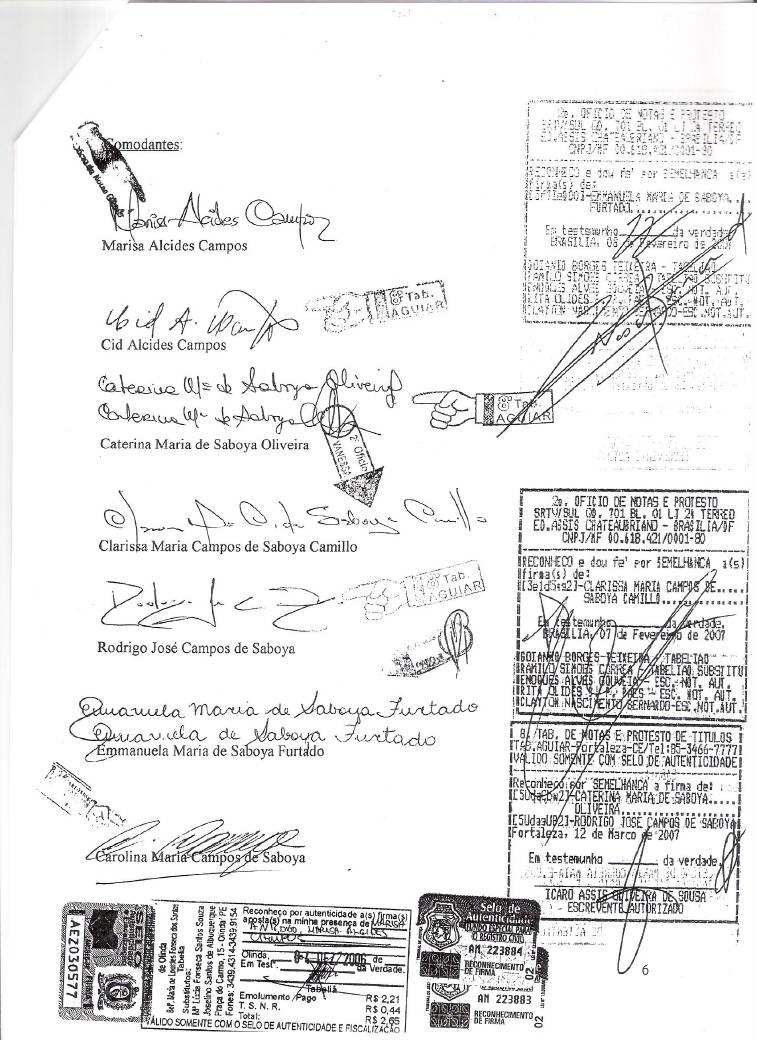 Comodantes:
Marisa Alcides Campos
Marisa Alcides Campos
Cid Alcides Campos
8º Tab.
AGUIAR
Caterina Mª de Saboya Oliveira
Caterina Mª de Saboya
Caterina Maria de Saboya Oliveira
8º Tab.
AGUIAR
2º Ofício
VANESSA
Clarissa Maria Campos de Saboya Camillo
8º Tab.
AGUIAR
Rodrigo José Campos de Saboya
Emanuela Maria de Saboya Furtado
Emanuela de Saboya Furtado
Emmanuela Maria de Saboya Furtado
Carolina Maria Campos de Saboya
2o. OFICIO DE NOTAS E PROTESTO
SRTV/SUL QD. 701 BL. 01 LJ 24 TERREO
ED.ASSIS CHATEAUBRIAND - BRASILIA/DF
CNPJ/MF 00.618.421/0001-80
RECONHECO e dou fe' por SEMELHANCA a(s)
firma(s) de:
EMMANUELA MARIA DE SABOYA...
FURTADO
Em testemunho da verdade
BRASILIA, 08 de Fevereiro de 2007
GOIANIO BORGES TEIXEIRA - TABELIAO
2o. OFICIO DE NOTAS E PROTESTO
SRTV/SUL QD. 701 BL. 01 LJ 24 TERREO
ED.ASSIS CHATEAUBRIAND - BRASILIA/DF
CNPJ/MF 00.618.421/0001-80
RECONHECO e dou fe' por SEMELHANCA a(s)
firma(s) de:
CLARISSA MARIA CAMPOS DE.....
SABOYA CAMILLO
Em testemunho da verdade.
BRASILIA, 07 de Fevereiro de 2007
GOIANIO BORGES TEIXEIRA - TABELIAO
RAMILO SIMOES CORREA - TABELIAO SUBSTITU
ENOQUES ALVES GOUVEIA - ESC. NOT. AUT.
RITA OLIDES ESC. NOT. AUT.
CLAYTON NASCIMENTO BERNARDO-ESC.NOT.AUT.
8. TAB. DE NOTAS E PROTESTO DE TITULOS
TAB.AGUIAR-Fortaleza-CE/Tel:85-3466-7777
VALIDO SOMENTE COM SELO DE AUTENTICIDADE
Reconheço por SEMELHANCA a firma de:
CATERINA MARIA DE SABOYA.....
OLIVEIRA
RODRIGO JOSE CAMPOS DE SABOYA
Fortaleza, 12 de Marco de 2007
Em testemunho da verdade.
ICARO ASSIS OLIVEIRA DE SOUSA
- ESCREVENTE AUTORIZADO
AEZ030577
SELO
de Olinda
Belª. Maria de Lourdes Fonseca dos Santos
Tabeliã
Substitutos:
Mª Lúcia Fonseca Santos Souza
Joselino Santos de Albuquerque
Praça do Carmo, 15 - Olinda/PE
Fones: 3439.4314-3439.9154
Reconheço por autenticidade a(s) firma(s)
aposta(s) na minha presença de MARISA
Olinda, 2006
Em Testº. de da Verdade.
Tabeliã
Emolumento Pago R$ 2,21
T. S. N. R. R$ 0,44
Total: R$ 2,65
VÁLIDO SOMENTE COM O SELO DE AUTENTICIDADE E FISCALIZAÇÃO
Selo de
Autenticidade
AM 223884
RECONHECIMENTO
DE FIRMA
02
AM 223883
RECONHECIMENTO
DE FIRMA
02
6